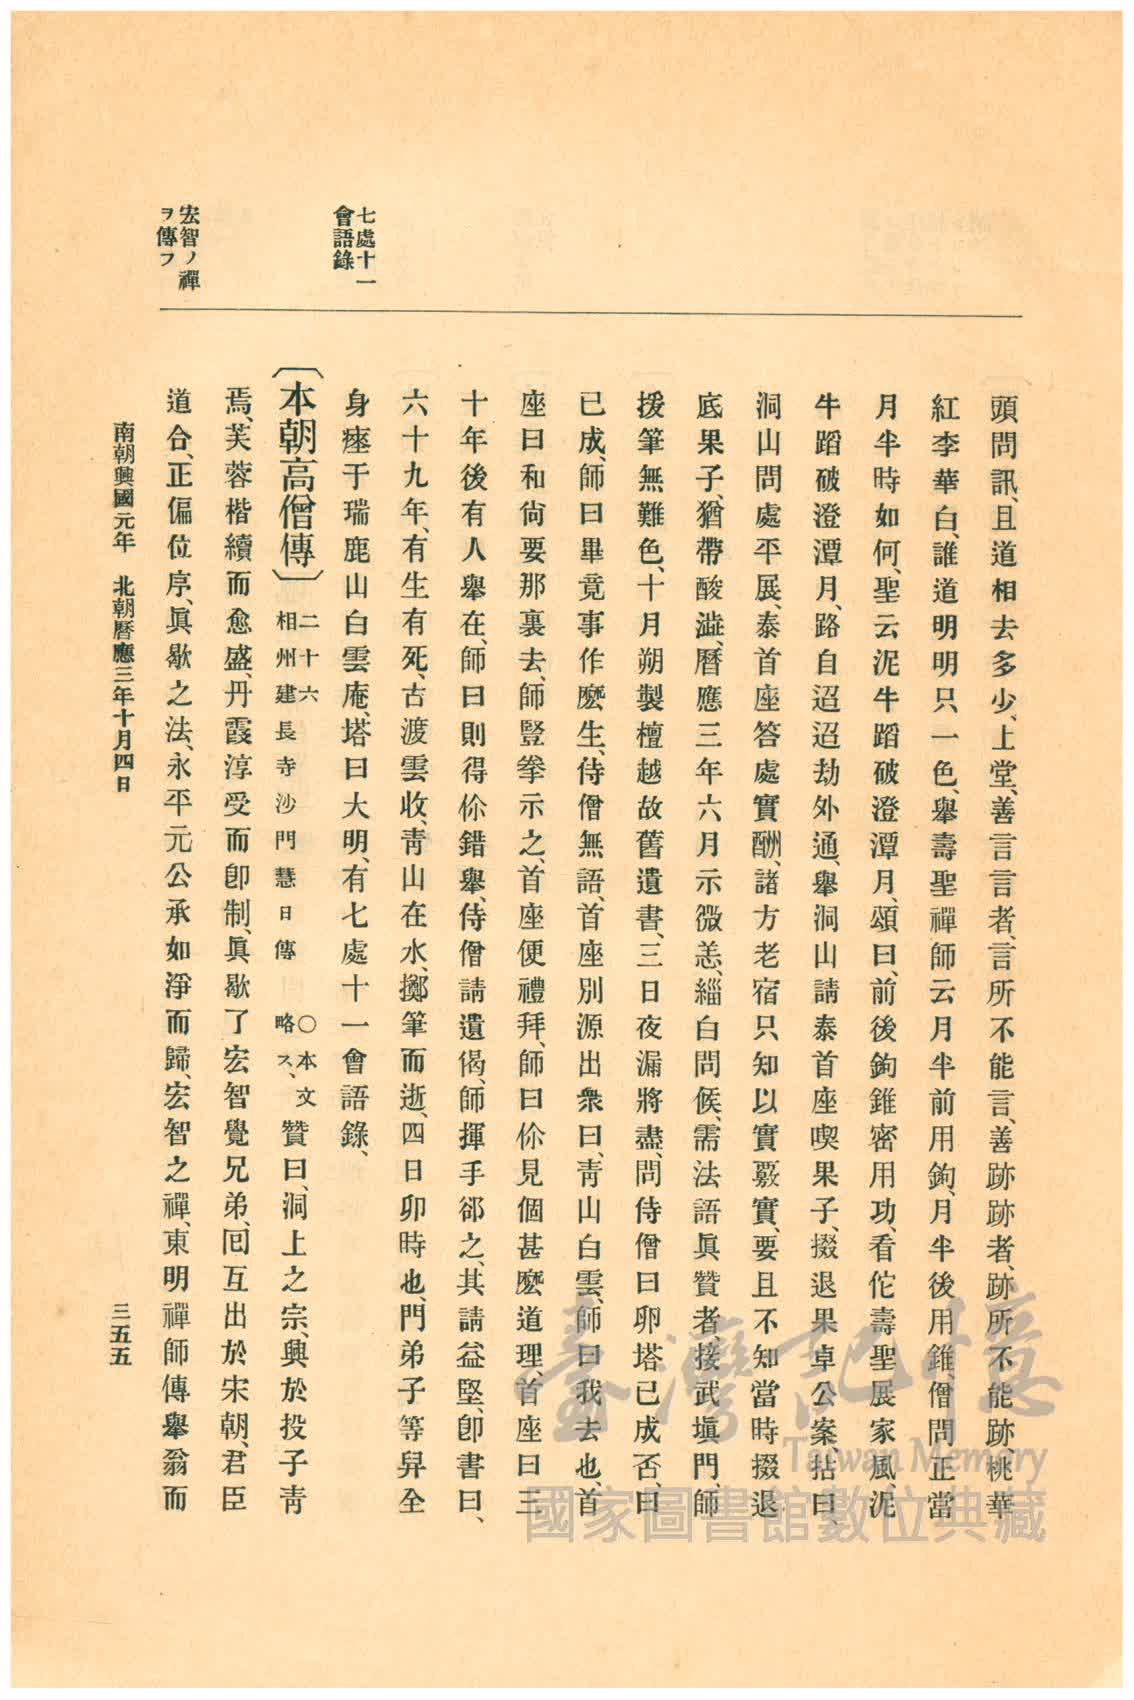 七處十一
會語錄
宏智ノ禪
ヲ傳フ
頭問訊、且道相去多少、上堂、善言言者、言所不能言、善跡跡者、跡所不能跡、桃華
紅李華白、誰道明明只一色、舉壽聖禪師云月半前用鉤、月半後用錐、僧問正當
月半時如何、聖云泥牛蹈破澄潭月、頌曰、前後鉤錐密用功、看佗壽聖展家風、泥
牛蹈破澄潭月、路自迢迢劫外通、舉洞山請泰首座喫果子、掇退果卓公案、拈曰、
洞山問處平展、泰首座答處實酬、諸方老宿只知以實覈實、要且不知當時掇退
底果子、猶帶酸澁、曆應三年六月示微恙、緇白問候、需法語眞贊者、接武塡門、師
援筆無難色、十月朔製檀越故舊遺書、三日夜漏將盡、問侍僧曰卵塔已成否、曰
已成、師曰畢竟事作麽生、侍僧無語、首座別源出衆曰、靑山白雲、師曰我去也、首
座曰和尙要那裏去、師豎拳示之、首座便禮拜、師曰你見個甚麽道理、首座曰三
十年後有人舉在、師曰則得你錯舉、侍僧請遺偈、師揮手郤之、其請益堅、卽書曰、
六十九年、有生有死、古渡雲收、靑山在水、擲筆而逝、四日卯時也、門弟子等舁全
身瘞于瑞鹿山白雲庵、塔曰大明、有七處十一會語錄、
〔本朝高僧傳〕二十六
相州建長寺沙門慧日傳 〇本文
略ス、贊曰、洞上之宗、興於投子靑
焉、芙蓉楷續而愈盛、丹霞淳受而卽制、眞歇了宏智覺兄弟、囘互出於宋朝、君臣
道合、正偏位序、眞歇之法、永平元公承如淨而歸、宏智之禪、東明禪師傳舉翁而
南朝興國元年 北朝曆應三年十月四日
三五五
臺灣記憶
Taiwan Memory
國家圖書館數位典藏